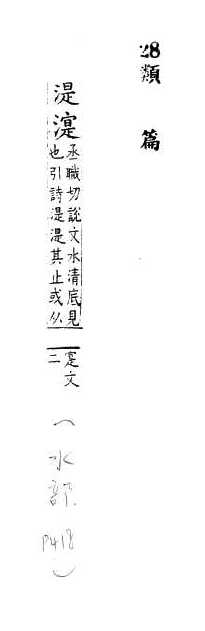 28類篇
湜𣾰丞職切說文水清底見
也引詩湜湜其止或从
寔文
二
(水部 P418)